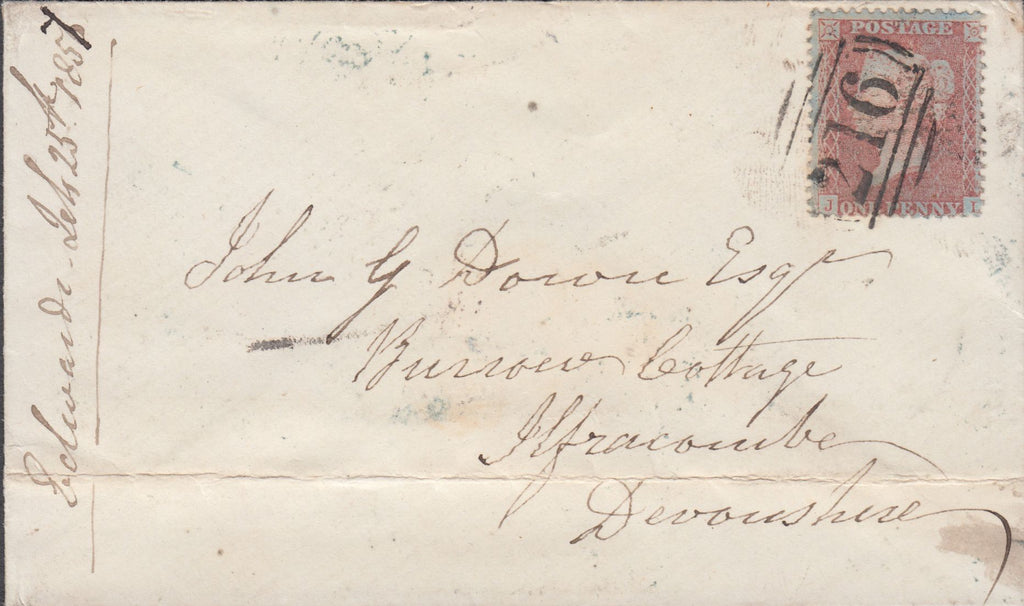 POSTAGE
216
J
ONE PENNY
John G Down Esqr
Burrow Cottage
Ilfracombe
Devonshire
Edwards Feb 25th 1857